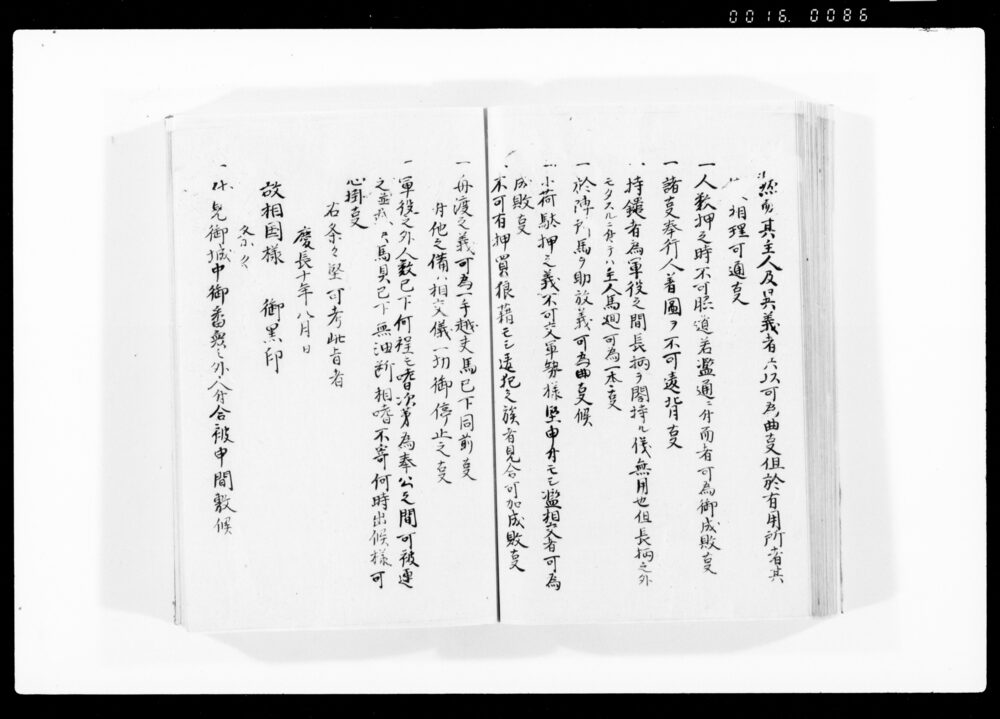 0016. 0086
然而其主人及異義者六以可為曲事但於有用所者其
相理可通事
一人数押之時不可脇道若濫通ニ付而者可為御成敗事
一諸事奉行人著圖ヲ不可違背事
持鑓者為軍役之間長柄ヲ閣持ル儀無用也但長柄之外
モタスルニ付テハ主人馬廻可為一本事
一於陣前馬ヲ助放義可為曲事候
一小荷駄押之義不可交軍勢様堅申付モシ濫相交者可為
成敗事
不可有押買狼藉モシ違犯之族者見合可加成敗事
一舟渡之義可為一手越夫馬已下同前事
付他之備ハ相交儀一切御停止之事
一軍役之外人数已下何程モ嗜次第為奉公之間可被連
之 馬具已下無油断相嗜不寄何時出候様可
心掛事
右条々堅可考此旨者
慶長十年八月日
故相国様 御黒印
条々
一 御城中御番無之外 被申間敷候